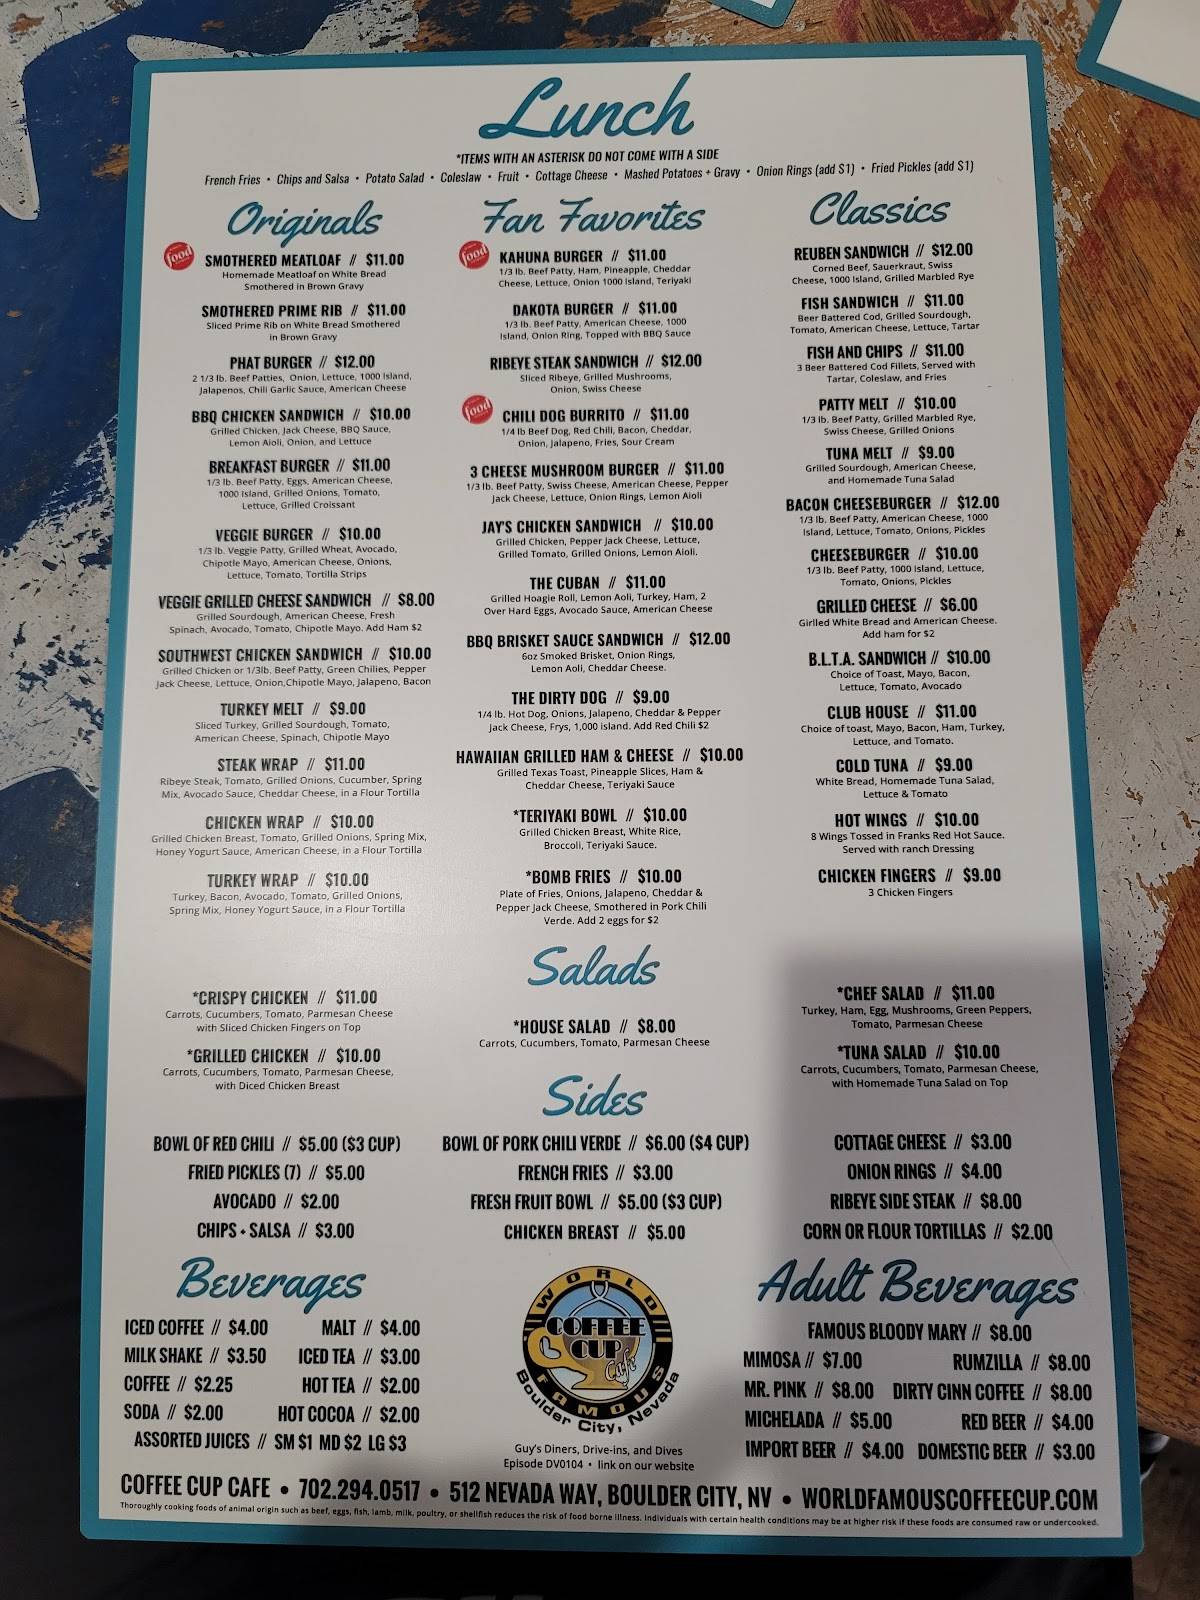 Lunch
*ITEMS WITH AN ASTERISK DO NOT COME WITH A SIDE
French Fries • Chips and Salsa • Potato Salad • Coleslaw • Fruit • Cottage Cheese • Mashed Potatoes + Gravy • Onion Rings (add $1) • Fried Pickles (add $1)
Originals
food
SMOTHERED MEATLOAF // $11.00
Homemade Meatloaf on White Bread
Smothered in Brown Gravy
SMOTHERED PRIME RIB // $11.00
Sliced Prime Rib on White Bread Smothered
in Brown Gravy
PHAT BURGER // $12.00
2 1/3 lb. Beef Patties, Onion, Lettuce, 1000 Island,
Jalapenos, Chili Garlic Sauce, American Cheese
BBQ CHICKEN SANDWICH // $10.00
Grilled Chicken, Jack Cheese, BBQ Sauce,
Lemon Aioli, Onion, and Lettuce
BREAKFAST BURGER // $11.00
1/3 lb. Beef Patty, Eggs, American Cheese,
1000 Island, Grilled Onions, Tomato,
Lettuce, Grilled Croissant
VEGGIE BURGER // $10.00
1/3 lb. Veggie Patty, Grilled Wheat, Avocado,
Chipotle Mayo, American Cheese, Onions,
Lettuce, Tomato, Tortilla Strips
VEGGIE GRILLED CHEESE SANDWICH // $8.00
Grilled Sourdough, American Cheese, Fresh
Spinach, Avocado, Tomato, Chipotle Mayo. Add Ham $2
SOUTHWEST CHICKEN SANDWICH // $10.00
Grilled Chicken or 1/3lb. Beef Patty, Green Chilies, Pepper
Jack Cheese, Lettuce, Onion,Chipotle Mayo, Jalapeno, Bacon
TURKEY MELT // $9.00
Sliced Turkey, Grilled Sourdough, Tomato,
American Cheese, Spinach, Chipotle Mayo
STEAK WRAP // $11.00
Ribeye Steak, Tomato, Grilled Onions, Cucumber, Spring
Mix, Avocado Sauce, Cheddar Cheese, in a Flour Tortilla
CHICKEN WRAP // $10.00
Grilled Chicken Breast, Tomato, Grilled Onions, Spring Mix,
Honey Yogurt Sauce, American Cheese, in a Flour Tortilla
TURKEY WRAP // $10.00
Turkey, Bacon, Avocado, Tomato, Grilled Onions,
Spring Mix, Honey Yogurt Sauce, in a Flour Tortilla
Fan Favorites
food
KAHUNA BURGER // $11.00
1/3 lb. Beef Patty, Ham, Pineapple, Cheddar
Cheese, Lettuce, Onion 1000 Island, Teriyaki
DAKOTA BURGER // $11.00
1/3 lb. Beef Patty, American Cheese, 1000
Island, Onion Ring, Topped with BBQ Sauce
RIBEYE STEAK SANDWICH // $12.00
Sliced Ribeye, Grilled Mushrooms,
Onion, Swiss Cheese
food
CHILI DOG BURRITO // $11.00
1/4 lb Beef Dog, Red Chili, Bacon, Cheddar,
Onion, Jalapeno, Fries, Sour Cream
3 CHEESE MUSHROOM BURGER // $11.00
1/3 lb. Beef Patty, Swiss Cheese, American Cheese, Pepper
Jack Cheese, Lettuce, Onion Rings, Lemon Aioli
JAY'S CHICKEN SANDWICH // $10.00
Grilled Chicken, Pepper Jack Cheese, Lettuce,
Grilled Tomato, Grilled Onions, Lemon Aioli.
THE CUBAN // $11.00
Grilled Hoagie Roll, Lemon Aoli, Turkey, Ham, 2
Over Hard Eggs, Avocado Sauce, American Cheese
BBQ BRISKET SAUCE SANDWICH // $12.00
6oz Smoked Brisket, Onion Rings,
Lemon Aoli, Cheddar Cheese.
THE DIRTY DOG // $9.00
1/4 lb. Hot Dog, Onions, Jalapeno, Cheddar & Pepper
Jack Cheese, Frys, 1,000 island. Add Red Chili $2
HAWAIIAN GRILLED HAM & CHEESE // $10.00
Grilled Texas Toast, Pineapple Slices, Ham &
Cheddar Cheese, Teriyaki Sauce
*TERIYAKI BOWL // $10.00
Grilled Chicken Breast, White Rice,
Broccoli, Teriyaki Sauce.
*BOMB FRIES // $10.00
Plate of Fries, Onions, Jalapeno, Cheddar &
Pepper Jack Cheese, Smothered in Pork Chili
Verde. Add 2 eggs for $2
Classics
REUBEN SANDWICH // $12.00
Corned Beef, Sauerkraut, Swiss
Cheese, 1000 Island, Grilled Marbled Rye
FISH SANDWICH // $11.00
Beer Battered Cod, Grilled Sourdough,
Tomato, American Cheese, Lettuce, Tartar
FISH AND CHIPS // $11.00
3 Beer Battered Cod Fillets, Served with
Tartar, Coleslaw, and Fries
PATTY MELT // $10.00
1/3 lb. Beef Patty, Grilled Marbled Rye,
Swiss Cheese, Grilled Onions
TUNA MELT // $9.00
Grilled Sourdough, American Cheese,
and Homemade Tuna Salad
BACON CHEESEBURGER // $12.00
1/3 lb. Beef Patty, American Cheese, 1000
Island, Lettuce, Tomato, Onions, Pickles
CHEESEBURGER // $10.00
1/3 lb. Beef Patty, 1000 island, Lettuce,
Tomato, Onions, Pickles
GRILLED CHEESE // $6.00
Girlled White Bread and American Cheese.
Add ham for $2
B.L.T.A. SANDWICH // $10.00
Choice of Toast, Mayo, Bacon,
Lettuce, Tomato, Avocado
CLUB HOUSE // $11.00
Choice of toast, Mayo, Bacon, Ham, Turkey,
Lettuce, and Tomato.
COLD TUNA // $9.00
White Bread, Homemade Tuna Salad,
Lettuce & Tomato
HOT WINGS // $10.00
8 Wings Tossed in Franks Red Hot Sauce.
Served with ranch Dressing
CHICKEN FINGERS // $9.00
3 Chicken Fingers
Salads
*CRISPY CHICKEN // $11.00
Carrots, Cucumbers, Tomato, Parmesan Cheese
with Sliced Chicken Fingers on Top
*GRILLED CHICKEN // $10.00
Carrots, Cucumbers, Tomato, Parmesan Cheese,
with Diced Chicken Breast
*HOUSE SALAD // $8.00
Carrots, Cucumbers, Tomato, Parmesan Cheese
*CHEF SALAD // $11.00
Turkey, Ham, Egg, Mushrooms, Green Peppers,
Tomato, Parmesan Cheese
*TUNA SALAD // $10.00
Carrots, Cucumbers, Tomato, Parmesan Cheese,
with Homemade Tuna Salad on Top
Sides
BOWL OF RED CHILI // $5.00 ($3 CUP)
FRIED PICKLES (7) // $5.00
AVOCADO // $2.00
CHIPS + SALSA // $3.00
BOWL OF PORK CHILI VERDE // $6.00 ($4 CUP)
FRENCH FRIES // $3.00
FRESH FRUIT BOWL // $5.00 ($3 CUP)
CHICKEN BREAST // $5.00
COTTAGE CHEESE // $3.00
ONION RINGS // $4.00
RIBEYE SIDE STEAK // $8.00
CORN OR FLOUR TORTILLAS // $2.00
Beverages
ICED COFFEE // $4.00 MALT // $4.00
MILK SHAKE // $3.50 ICED TEA // $3.00
COFFEE // $2.25 HOT TEA // $2.00
SODA // $2.00 HOT COCOA // $2.00
ASSORTED JUICES // SM $1 MD $2 LG $3
WORLD
COFFEE
CUP
Cafe
FAMOUS
Boulder City, Nevada
Guy's Diners, Drive-ins, and Dives
Episode DV0104 • link on our website
Adult Beverages
FAMOUS BLOODY MARY // $8.00
MIMOSA // $7.00 RUMZILLA // $8.00
MR. PINK // $8.00 DIRTY CINN COFFEE // $8.00
MICHELADA // $5.00 RED BEER // $4.00
IMPORT BEER // $4.00 DOMESTIC BEER // $3.00
COFFEE CUP CAFE • 702.294.0517 • 512 NEVADA WAY, BOULDER CITY, NV • WORLDFAMOUSCOFFEECUP.COM
Thoroughly cooking foods of animal origin such as beef, eggs, fish, lamb, milk, poultry, or shellfish reduces the risk of food borne illness. Individuals with certain health conditions may be at higher risk if these foods are consumed raw or undercooked.